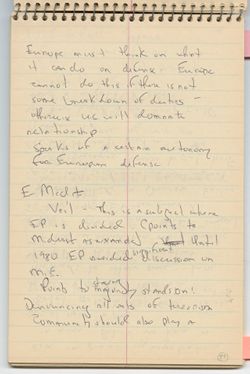 Europe must think on what
it can do on defense. Europe
cannot do this if there is not
some breakdown of duties -
otherwise US will dominate
relationship
Speaks of a certain autonomy
for European defense
E Mid +
Veil - This is a subject where
EP is divided (points to
Mideast as example) Until
1980 EP avoided significant discussion on
M.E.
Points to strong majority stands on!
Denouncing all acts of terrorism
Community should also play a